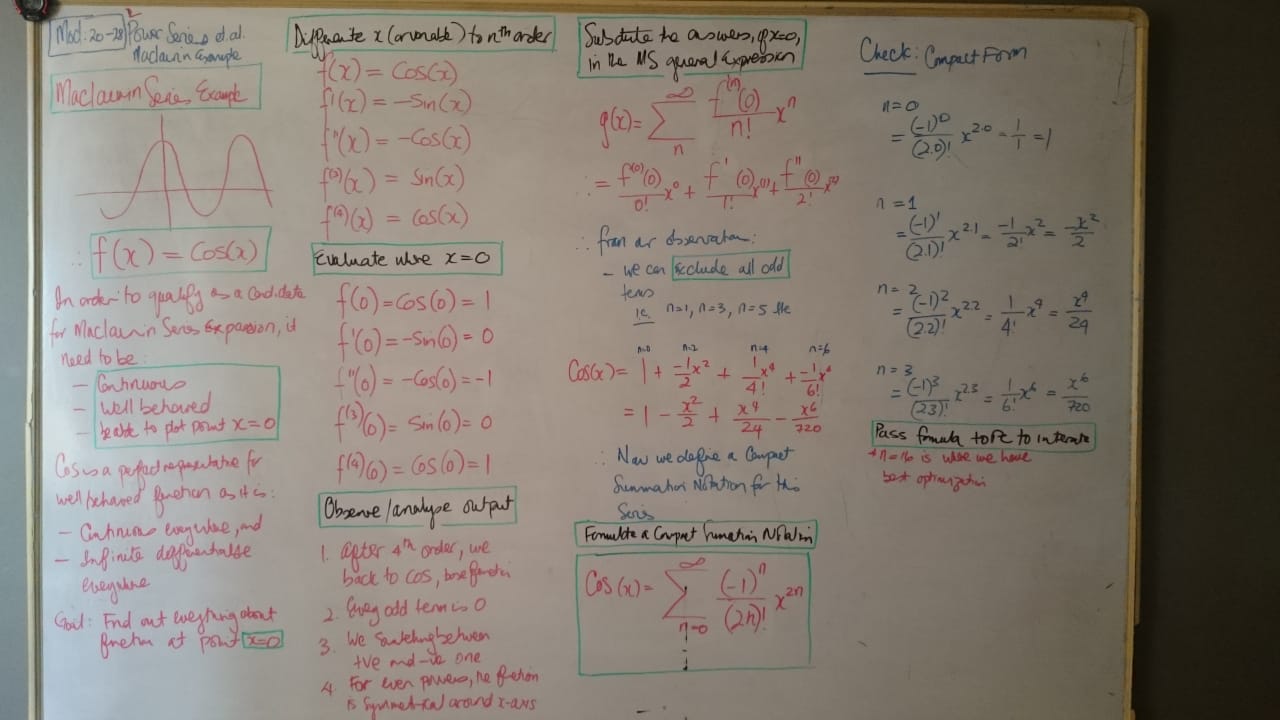 Mod: 20-28 Power Series et.al.
Maclaurin Example
Maclaurin Series Example
∴ f(x) = Cos(x)
In order to qualify as a candidate
for Maclaurin Series Expansion, it
need to be:
- Continuous
- Well behaved
- be able to plot point x=0
Cos is a perfect representative for
well behaved function as it is:
- Continuous everywhere, and
- Infinite differentiable
everywhere
Goal: Find out everything about
function at point x=0
Differentiate x (variable) to nth order
f(x) = Cos(x)
f'(x) = -Sin(x)
f''(x) = -Cos(x)
f⁽³⁾(x) = Sin(x)
f⁽⁴⁾(x) = Cos(x)
Evaluate where x=0
f(0) = Cos(0) = 1
f'(0) = -Sin(0) = 0
f''(0) = -Cos(0) = -1
f⁽³⁾(0) = Sin(0) = 0
f⁽⁴⁾(0) = Cos(0) = 1
Observe/analyse output
1. After 4th order, we
back to Cos, base function
2. Every odd term is 0
3. We switching between
+ve and -ve one
4. For even powers, the function
is symmetrical around x-axis
Substitute the answers, of x=0,
in the MS general Expression
g(x) = ∑ n ∞ f⁽ⁿ⁾(0)/n! xⁿ
∴ = f⁽⁰⁾(0)/0! x⁰ + f'(0)/1! x⁽¹⁾ + f''(0)/2! x⁽²⁾
∴ from our observation:
- we can exclude all odd
terms
ie. n=1, n=3, n=5 etc
n=0 n=2 n=4 n=6
Cos(x) = 1 + -1/2 x² + 1/4! x⁴ + -1/6! x⁶
= 1 - x²/2 + x⁴/24 - x⁶/720
∴ Now we define a Compact
Summation Notation for this
Series
Formulate a Compact Summation Notation
Cos(x) = ∑ n=0 ∞ (-1)ⁿ/(2n)! x²ⁿ
Check: Compact Form
n=0
= (-1)⁰/(2.0)! x^2.0 = 1/1 = 1
n=1
= (-1)¹/(2.1)! x^2.1 = -1/2! x² = -x²/2
n=2
= (-1)²/(2.2)! x^2.2 = 1/4! x⁴ = x⁴/24
n=3
= (-1)³/(2.3)! x^2.3 = 1/6! x⁶ = x⁶/720
Pass formula to PC to interate
* n=16 is where we have
best optimization